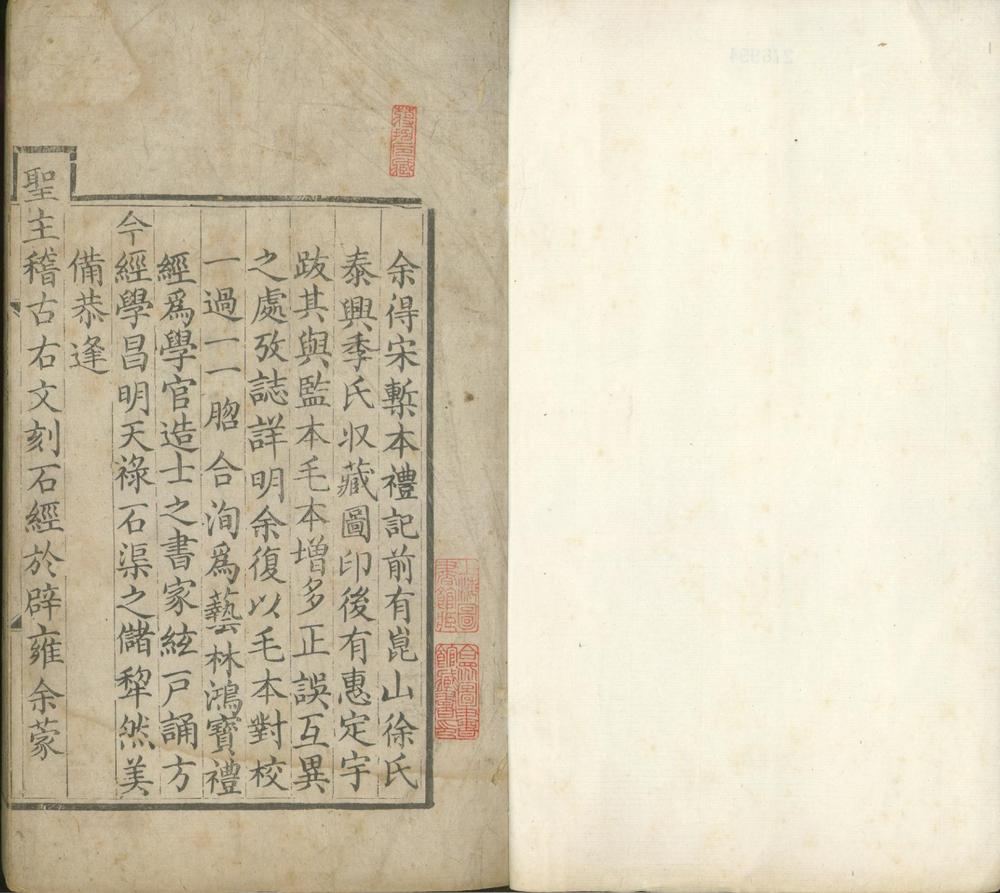 余得宋槧本禮記前有崑山徐氏
泰興季氏収藏圖印後有惠定宇
跋其與監本毛本增多正誤互異
之處攷誌詳明余復以毛本對校
一過一一脗合洵爲藝林鴻寶禮
經爲學官造士之書家絃戸誦方
今經學昌明天祿石渠之儲犂然美
備恭逢
聖主稽古右文刻石經於辟雍余蒙
上海圖書館藏
合眾圖書館藏書印